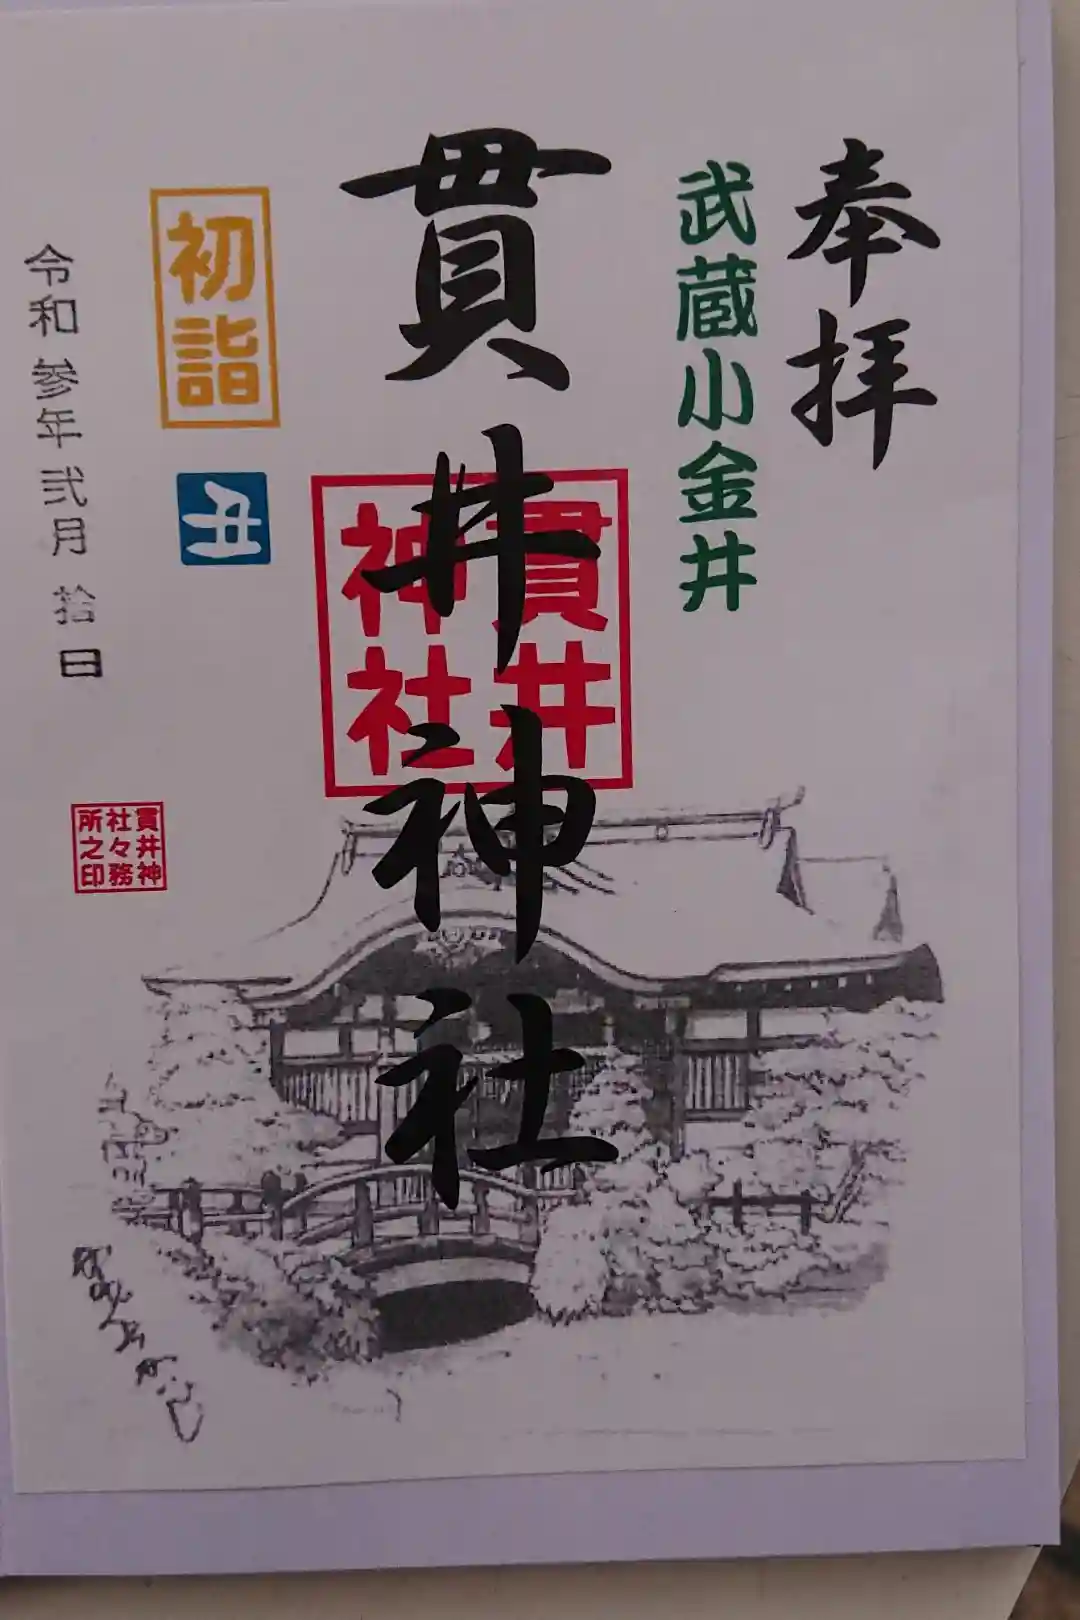 奉拝
武蔵小金井
貫井神社
貫井
神社
初詣
令和参年弐月拾日
貫井神
社々務
所之印